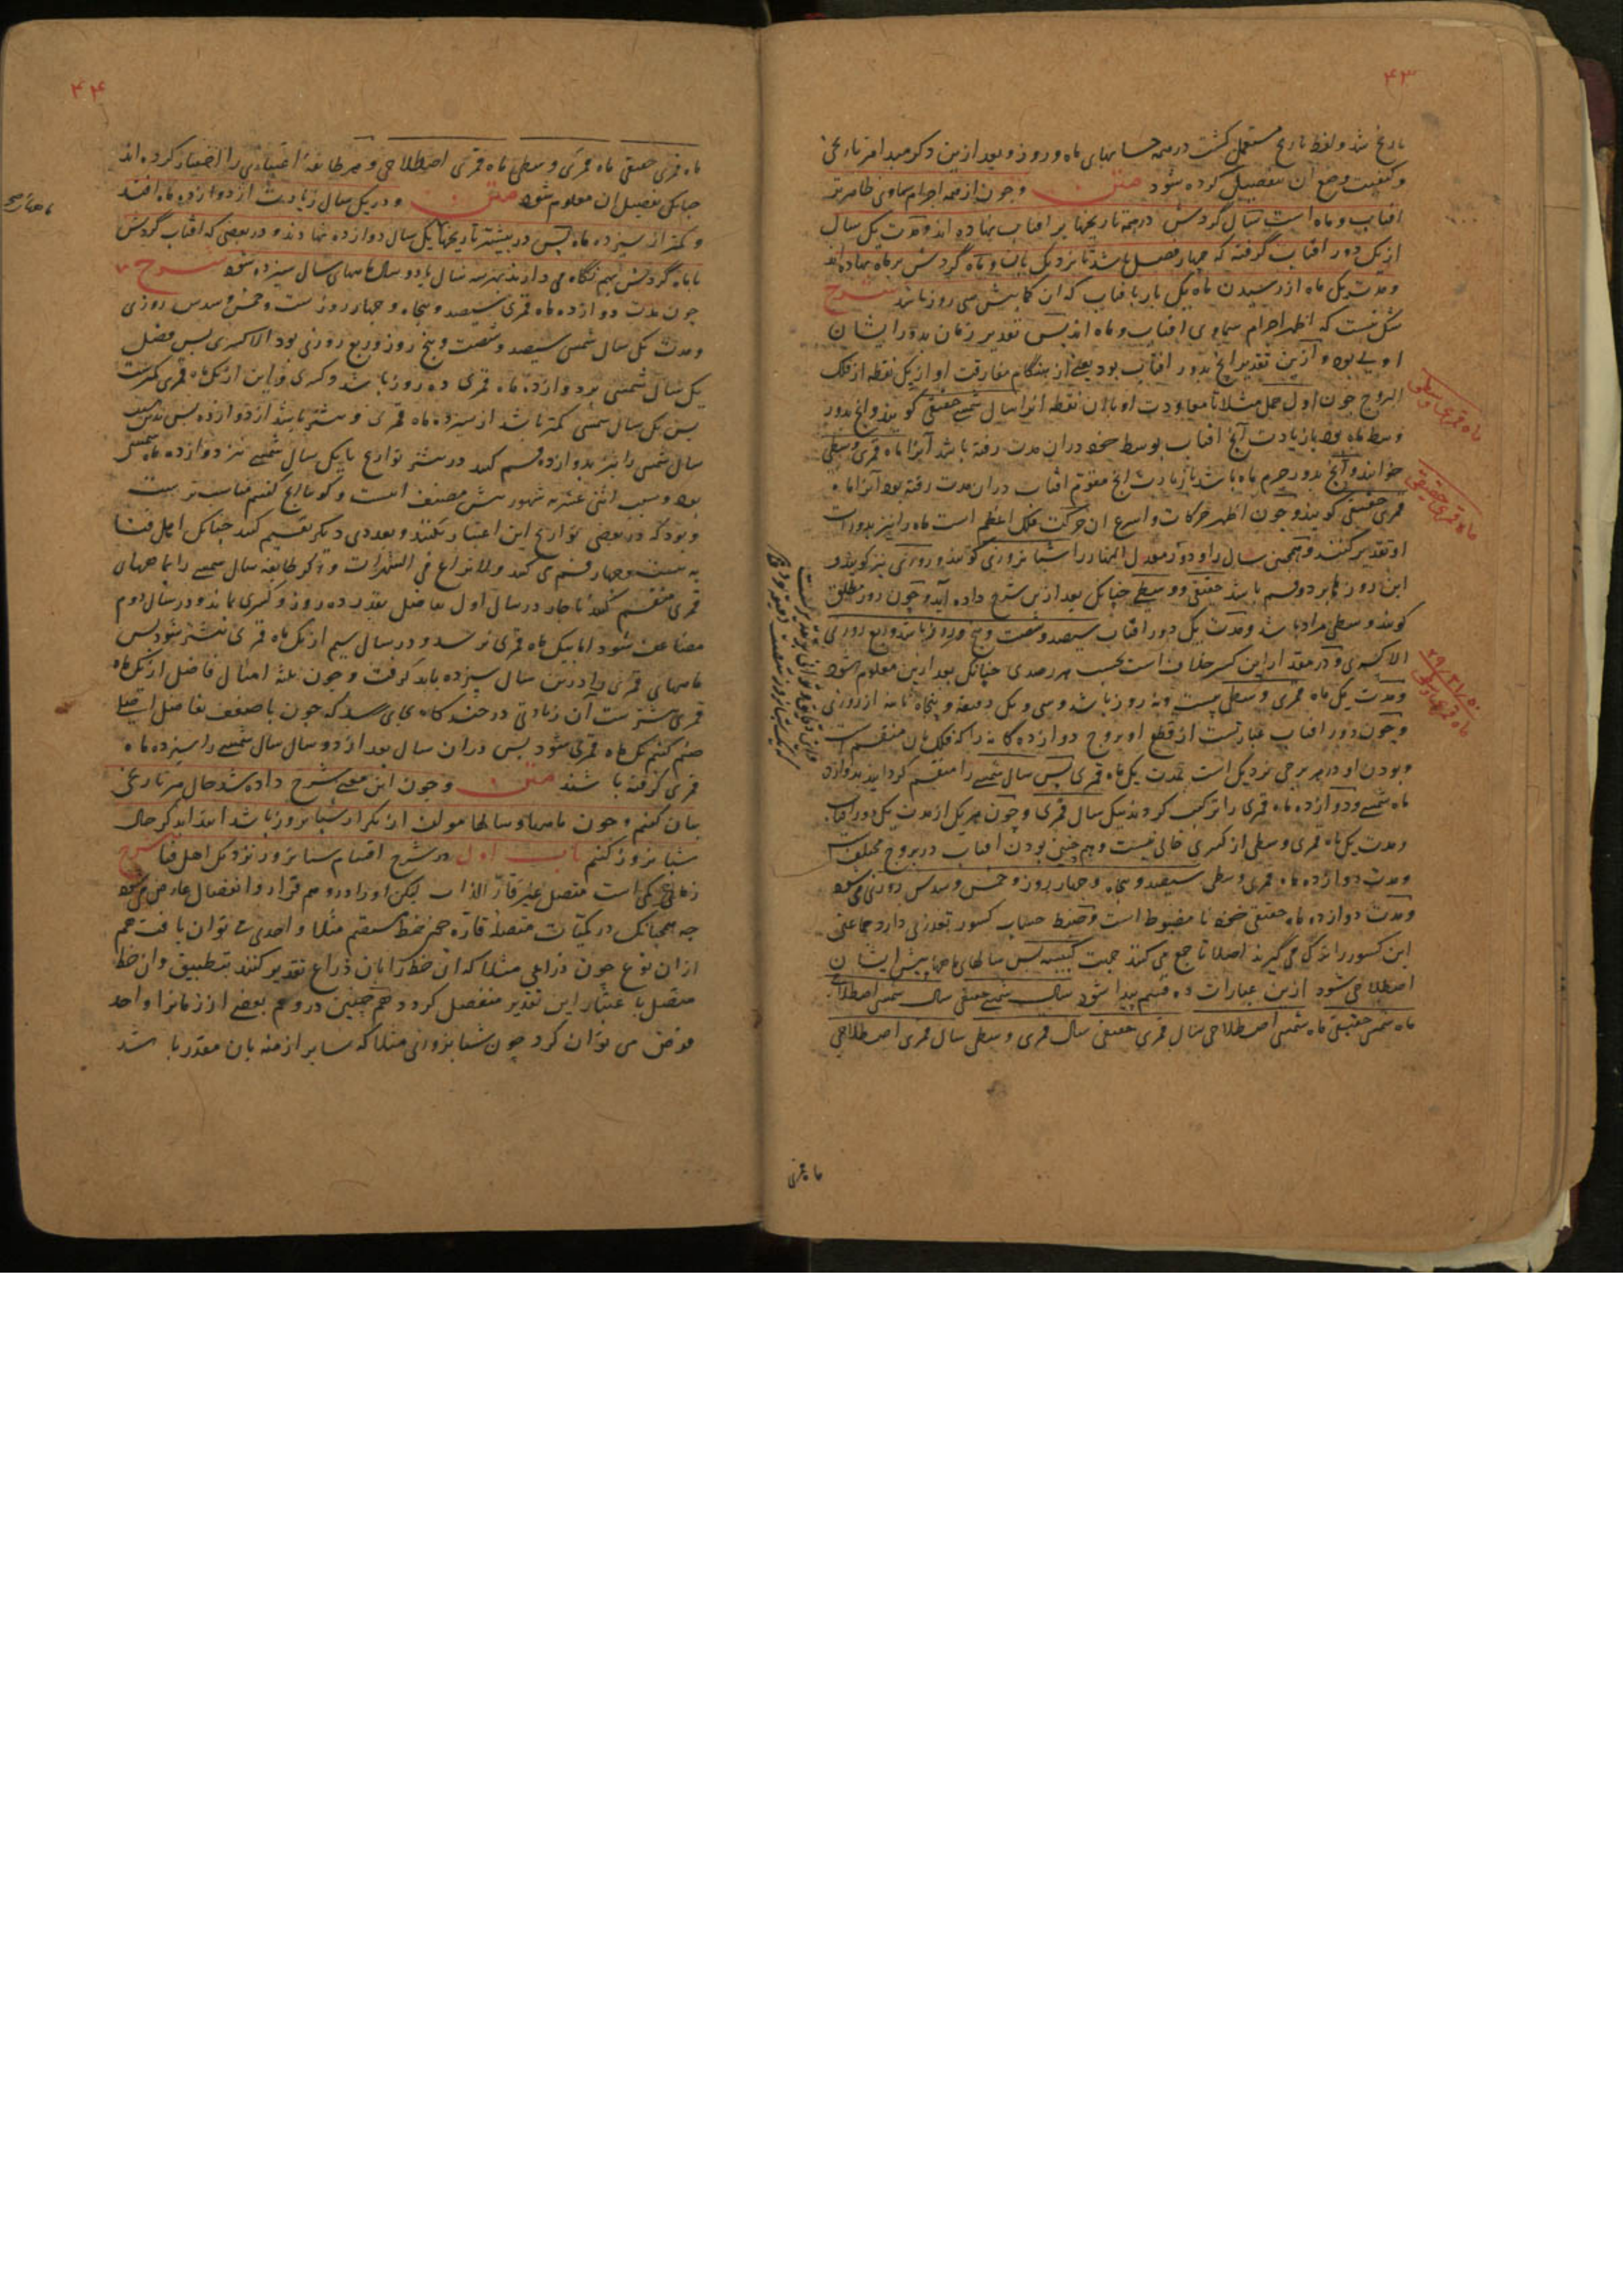 ۴۳
تاریخ شد و لفظ تاریخ مستعمل گشت در همه حسابهای ماه و روز و بعد ازین ذکر مبدا هر تاریخی
و کیفیت وضع آن بتفصیل کرده شود متن و چون از همه اجرام سماوی ظاهرتر
افتاب و ماه است سال گردش در همه تاریخها بر افتاب نهاده اند و مدت یک سال
از یک دور افتاب گرفته که چهار فصل باشد تا نزدیک بآن و ماه گردش بر ماه نهاده اند
و مدت یک ماه از رسیدن ماه یک بار بافتاب که آن کمابیش سی روز باشد شرح
شک نیست که اظهر اجرام سماوی افتاب و ماه اند پس تقدیر زمان بدور ایشان
اولی بود و ازین تقدیر انچ بدور افتاب بود یعنی از هنگام مفارقت او از یک نقطه از فلک
البروج چون اول حمل مثلا تا معاودت او بان نقطه انرا سال شمسی حقیقی گویند و انچ بدور
وسط ماه بود با زیادت آنچ افتاب بوسط خود در ان مدت رفته باشد آنرا ماه قمری وسطی
خوانند و آنچ بدور جرم ماه باشد با زیادت انچ مقوم افتاب در ان مدت رفته بود آنرا ماه
قمری حقیقی گویند و چون اظهر حرکات و اسرع ان حرکت فلک اعظم است ماه را نیز بدورات
او تقدیر کنند و همچنین سال را و دور معدل النهار را شبانروزی گویند و روزی نیز گویند و
این روزها بر دو قسم باشد حقیقی و وسطی چنانک بعد ازین شرح داده آید و چون روز مطلق
گویند وسطی مراد باشد و مدت یک دور افتاب سیصد و شصت و پنج روز باشد و ربع روزی
الا کسری و در مقدار این کسر خلاف است بحسب هر رصدی چنانک بعد ازین معلوم شود
و مدت یک ماه قمری وسطی بیست و نه روز باشد و سی و یک دقیقه و پنجاه ثانیه از روزی
و چون دور افتاب عبارتست از قطع او بروج دوازده گانه را که فلک بان منقسم است
و بودن او در هر برجی نزدیک است بمدت یک ماه قمری پس سال شمسی را منقسم گردانیدند بدوازده
ماه شمسی و دوازده ماه قمری را ترکیب کردند بیک سال قمری و چون هر یک از مدت یک دور افتاب
و مدت یک ماه قمری وسطی از کسری خالی نیست و هم چنین بودن افتاب در بروج مختلف است
و مدت دوازده ماه قمری وسطی سیصد و پنجاه و چهار روز و خمس و سدس روزی می شود
و مدت دوازده ماه حقیقی خود نا مضبوط است و ضبط حساب کسور تعذری دارد جماعتی
این کسور را ترک می گیرند اصلا تا جمع می کنند جهت کبیسه پس سالهای و ماهها پیش ایشان
اصطلاحی شود ازین عبارات ده قسم پیدا شود سال شمسی حقیقی سال شمسی اصطلاحی
ماه شمسی حقیقی ماه شمسی اصطلاحی سال قمری حقیقی سال قمری وسطی سال قمری اصطلاحی
ماه قمری وسطی
ماه قمری حقیقی
ماه قمری
۴۴
ماه قمری حقیقی ماه قمری وسطی ماه قمری اصطلاحی و هر طایفه اعتباری را اختیار کرده اند
چنانک تفصیل ان معلوم شود متن و در یک سال زیادت از دوازده ماه افتد
و کمتر از سیزده ماه پس در بیشتر تاریخها یک سال دوازده نهادند و در بعضی که افتاب گردش
با ماه گردش بهم نگاه می دارند بهر سه سال یا دو سال ماههای سال سیزده شود شرح
چون مدت دوازده ماه قمری سیصد و پنجاه و چهار روز ست و خمس و سدس روزی
و مدت یک سال شمسی سیصد و شصت و پنج روز و ربع روزی بود الا کسری پس فضل
یک سال شمسی بر دوازده ماه قمری ده روز باشد و کسری و این از یک ماه قمری کمترست
پس یک سال شمسی کمتر باشد از سیزده ماه قمری و بیشتر باشد از دوازده پس بدین سبب
سال شمسی را نیز بدوازده قسم کنند در بیشتر تواریخ تا یک سال شمسی نیز دوازده ماه شمسی
بود و سبب اثنی عشریه شهور پیش مصنف اینست و گویا انچ گفتیم مناسب تر است
و بود که در بعضی تواریخ این اعتبار نکنند و بعددی دیگر تقسیم کنند چنانک اهل ختا
به بیست و چهار قسم می کنند ولا نزاع فی الشهرات و دیگر طایفه سال شمسی را بماههای
قمری منقسم کنند ناچار در سال اول تفاضل بقدر ده روز و کسری بماند و در سال دوم
مضاعف شود اما بیک ماه قمری نرسد و در سال سیم از یک ماه قمری بیشتر شود پس
ماههای قمری را درین سال سیزده باید گرفت و چون ثلثه امثال فاضل از یک ماه
قمری بیشترست آن زیادتی در چند گاه بجای رسد که چون با ضعف تفاضل
ضم کنیم یک ماه قمری شود پس در ان سال بعد از دو سال سال شمسی را سیزده ماه
قمری گرفته باشند متن و چون این معنی شرح داده شد حال هر تاریخی
بیان کنیم و چون ماهها و سالها مولف از تکرار شبانروز باشد ابتدا بذکر حال
شبانروز کنیم باب اول در شرح اقسام شبانروز نزدیک اهل ختا شرح
زمان کمی است متصل غیر قار الذات لیکن او را در وهم قرار و انفصال عارض می شود
چه همچنانک در کمیات متصله قاره چون خط مستقیم مثلا واحدی توان یافت هم
از ان نوع چون ذراعی مثلا که ان خط را بان ذراع تقدیر کنند بتطبیق و ان خط
متصل با عتبار این تقدیر منفصل گردد هم چنین در وهم بعضی از زمان را واحد
فرض می توان کرد چون شبانروزی مثلا که سایر ازمنه بان مقدر باشد
ماه قمری